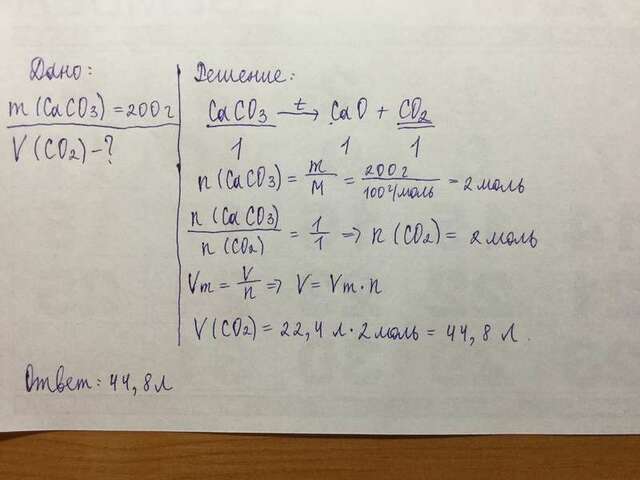 Дано:
m (CaCO3) = 200 г
V (CO2) - ?
Решение:
CaCO3 t→ CaO + CO2
1 1 1
n (CaCO3) = m/M = 200 г/100 г/моль = 2 моль
n (CaCO3)/n (CO2) = 1/1 => n (CO2) = 2 моль
Vm = V/n => V = Vm · n
V (CO2) = 22,4 л · 2 моль = 44,8 л.
Ответ: 44,8 л